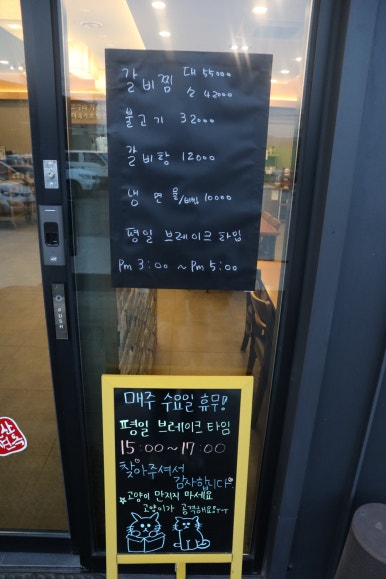 갈비찜 대 55000
소 42000
불고기 32000
갈비탕 12000
냉면 물/비빔 10000
평일 브레이크 타임
Pm 3:00 ~ Pm 5:00
매주 수요일 휴무!
평일 브레이크 타임
15:00~17:00
찾아주셔서
감사합니다.
고양이 만지지 마세요
고양이가 공격해요ㅜㅜ